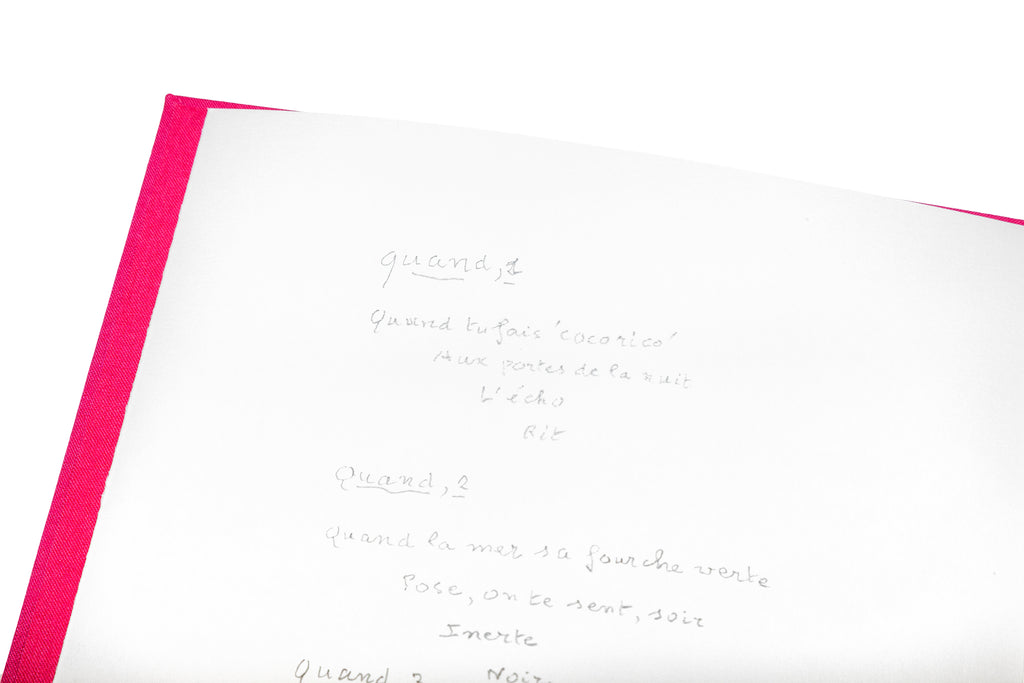 quand, 1
Quand tu fais 'cocorico'
Aux portes de la nuit
L'écho
Rit
Quand, 2
Quand la mer sa fourche verte
Pose, on te sent, soir
Inerte
Noir
Quand